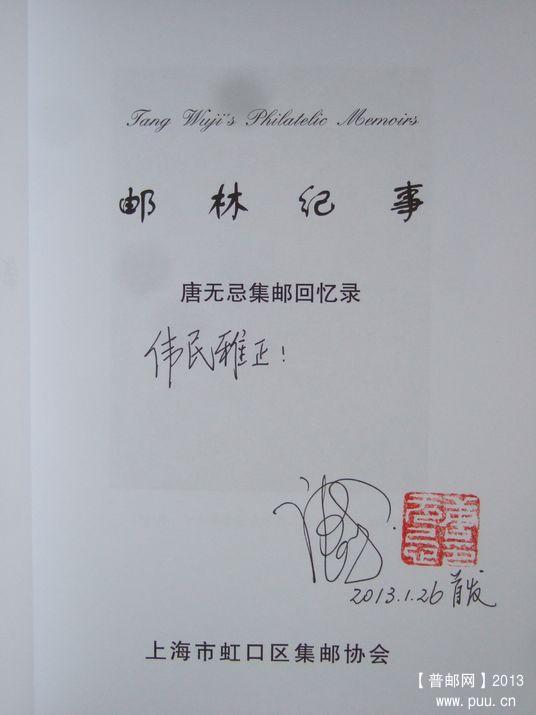 Tang Wuji's Philatelic Memoirs
邮林纪事
唐无忌集邮回忆录
伟民雅正！
2013.1.26 首发
上海市虹口区集邮协会
【普邮网】2013
www.puu.cn